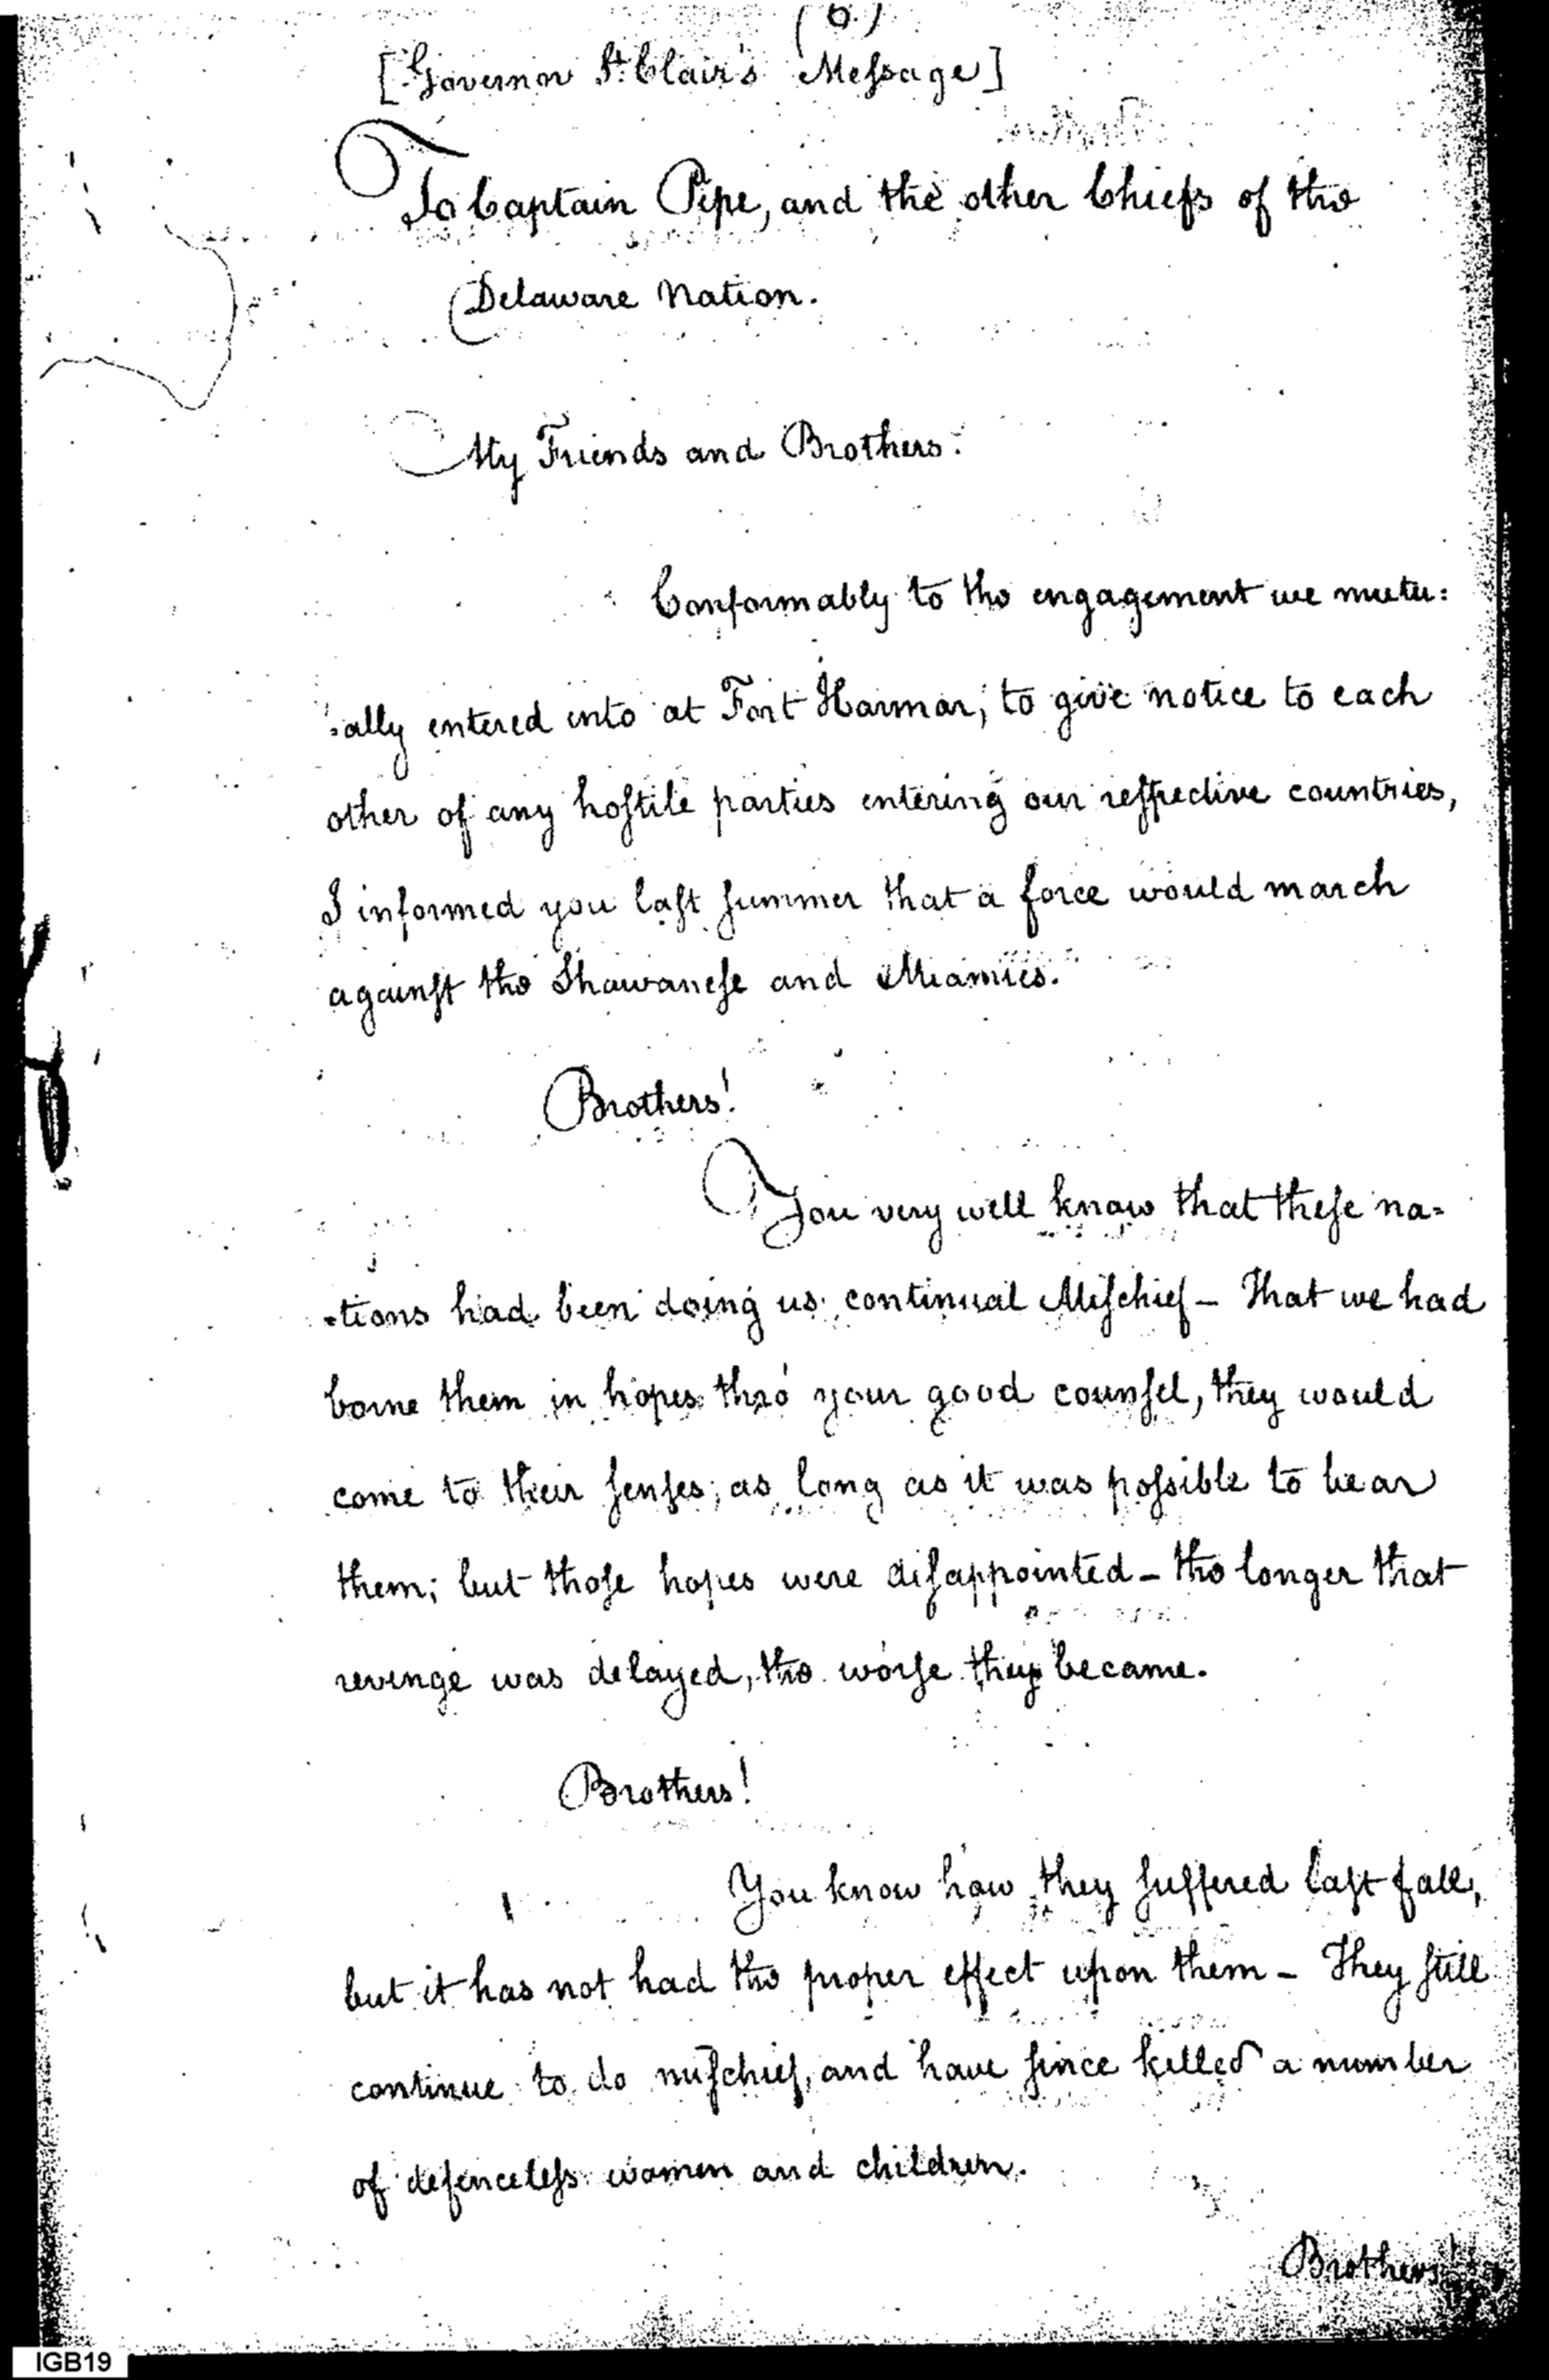 (6.)
[Governor St. Clair's Meſsage]
To Captain Pipe, and the other Chiefs of the
Delaware Nation.
My Friends and Brothers.
Conformably to the engagement we mutu:
:ally entered into at Fort Harmar, to give notice to each
other of any hoſtile parties entering our reſpective countries,
I informed you laſt ſummer that a force would march
againſt the Shawaneſe and Miamies.
Brothers!
You very well know that theſe na-
-tions had been doing us continual Miſchief - That we had
borne them in hopes thro' your good counſel, they would
come to their ſenſes, as long as it was poſsible to bear
them; but thoſe hopes were diſappointed - the longer that
revenge was delayed, the worſe they became.
Brothers!
You know how they ſuffered laſt fall,
but it has not had the proper effect upon them - They ſtill
continue to do miſchief, and have ſince killed a number
of defenceleſs women and children.
Brothers!
IGB19